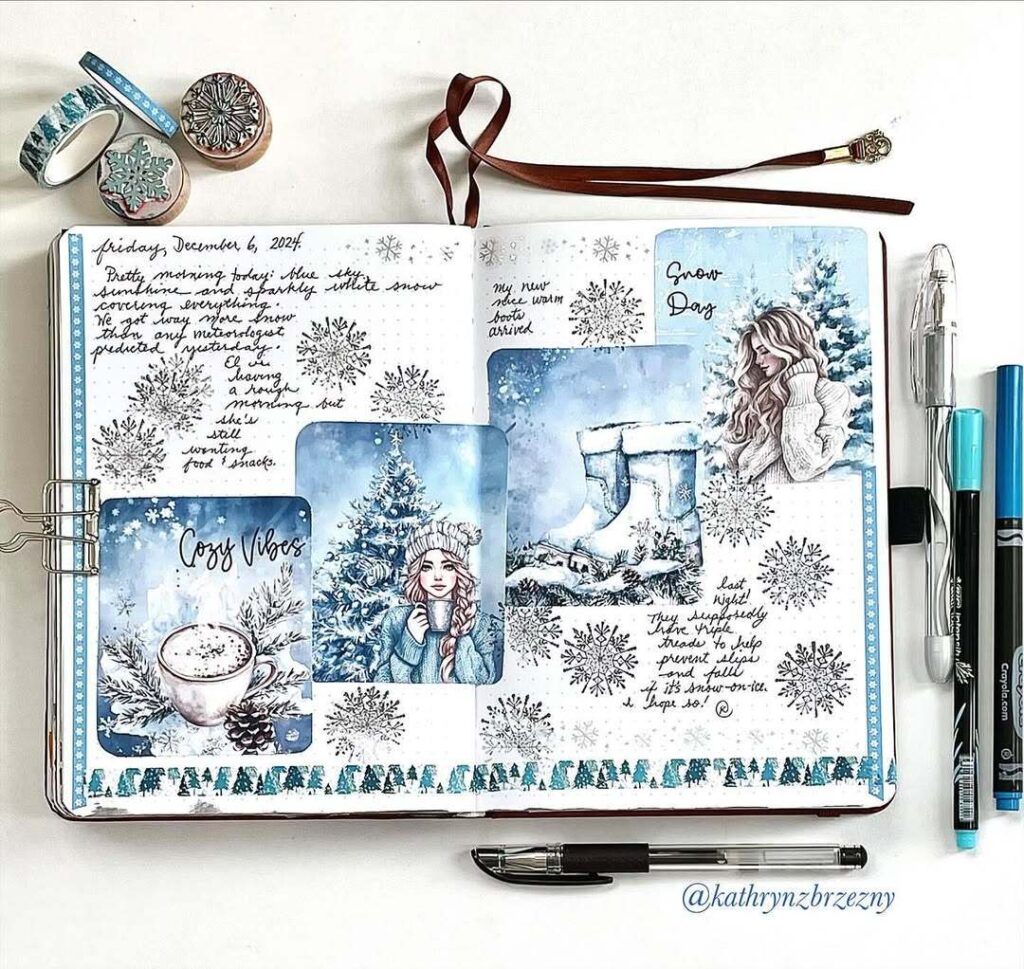 Friday, December 6, 2024.
Pretty morning today: blue sky,
sunshine and sparkly white snow
covering everything.
We got way more snow
than any meteorologist
predicted yesterday.
El is
having
a rough
morning but
she's
still
wanting
food & snacks.
Cozy Vibes
My new
nice warm
boots
arrived
Snow
Day
last
night!
They supposedly
have triple
treads to help
prevent slips
and falls
if it's snow-on-ice.
I hope so!
Crayola.com
@kathrynzbrzezny